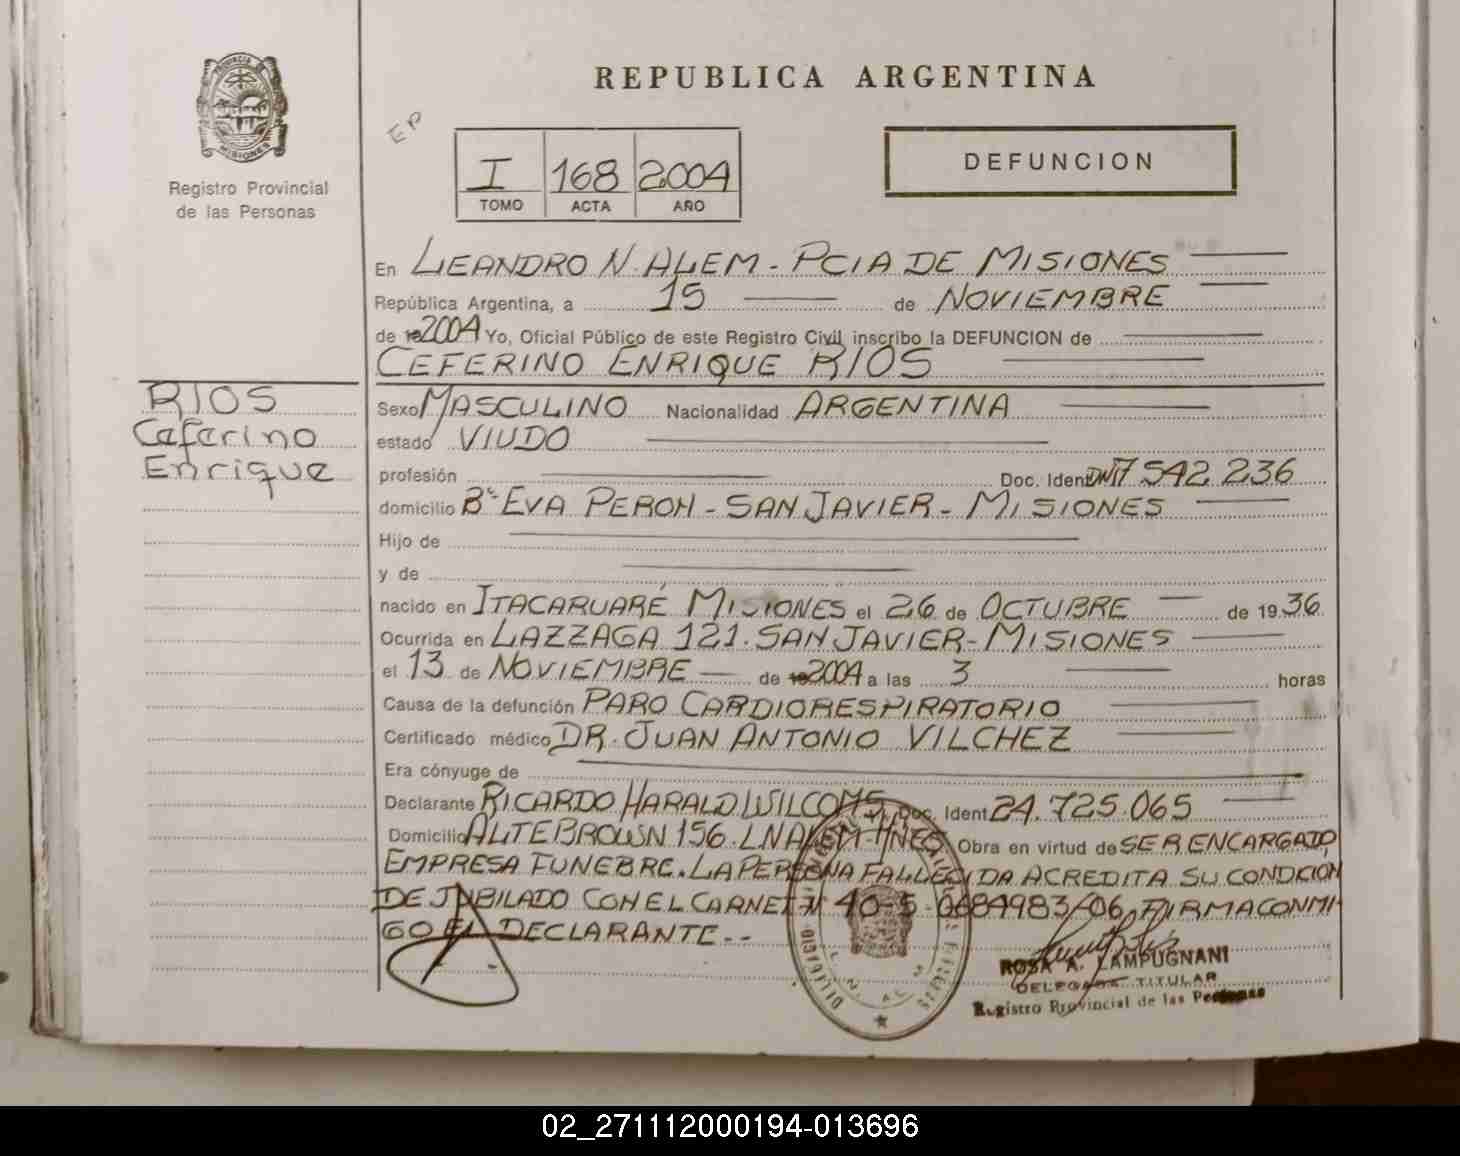 REPUBLICA ARGENTINA
PROVINCIA DE
MISIONES
Registro Provincial
de las Personas
EP
I 168 2004
TOMO ACTA AÑO
DEFUNCION
En LEANDRO N. ALEM - PCIA DE MISIONES
República Argentina, a 15 de NOVIEMBRE
de 19 2004 Yo, Oficial Público de este Registro Civil inscribo la DEFUNCION de
CEFERINO ENRIQUE RIOS
RIOS
Ceferino
Enrique
Sexo MASCULINO Nacionalidad ARGENTINA
estado VIUDO
profesión Doc. Ident. DNI 7 542 236
domicilio Bº EVA PERON - SAN JAVIER - MISIONES
Hijo de
y de
nacido en ITACARUARÉ MISIONES el 26 de OCTUBRE de 19 36
Ocurrida en LAZZAGA 121. SAN JAVIER - MISIONES
el 13 de NOVIEMBRE de 19 2004 a las 3 horas
Causa de la defunción PARO CARDIORESPIRATORIO
Certificado médico DR. JUAN ANTONIO VILCHEZ
Era cónyuge de
Declarante RICARDO HARALD WILCOMS Doc. Ident. 24.725.065
Domicilio ALTE BROWN 156. LN ALEM - MNES Obra en virtud de SER ENCARGADO
EMPRESA FUNEBRE. LA PERSONA FALLECIDA ACREDITA SU CONDICION
DE JUBILADO CON EL CARNET N 40-5-0684983/06, FIRMA CONMI-
GO EL DECLARANTE.--
ROSA A. LAMPUGNANI
DELEGADA TITULAR
Registro Provincial de las Personas
02_271112000194-013696